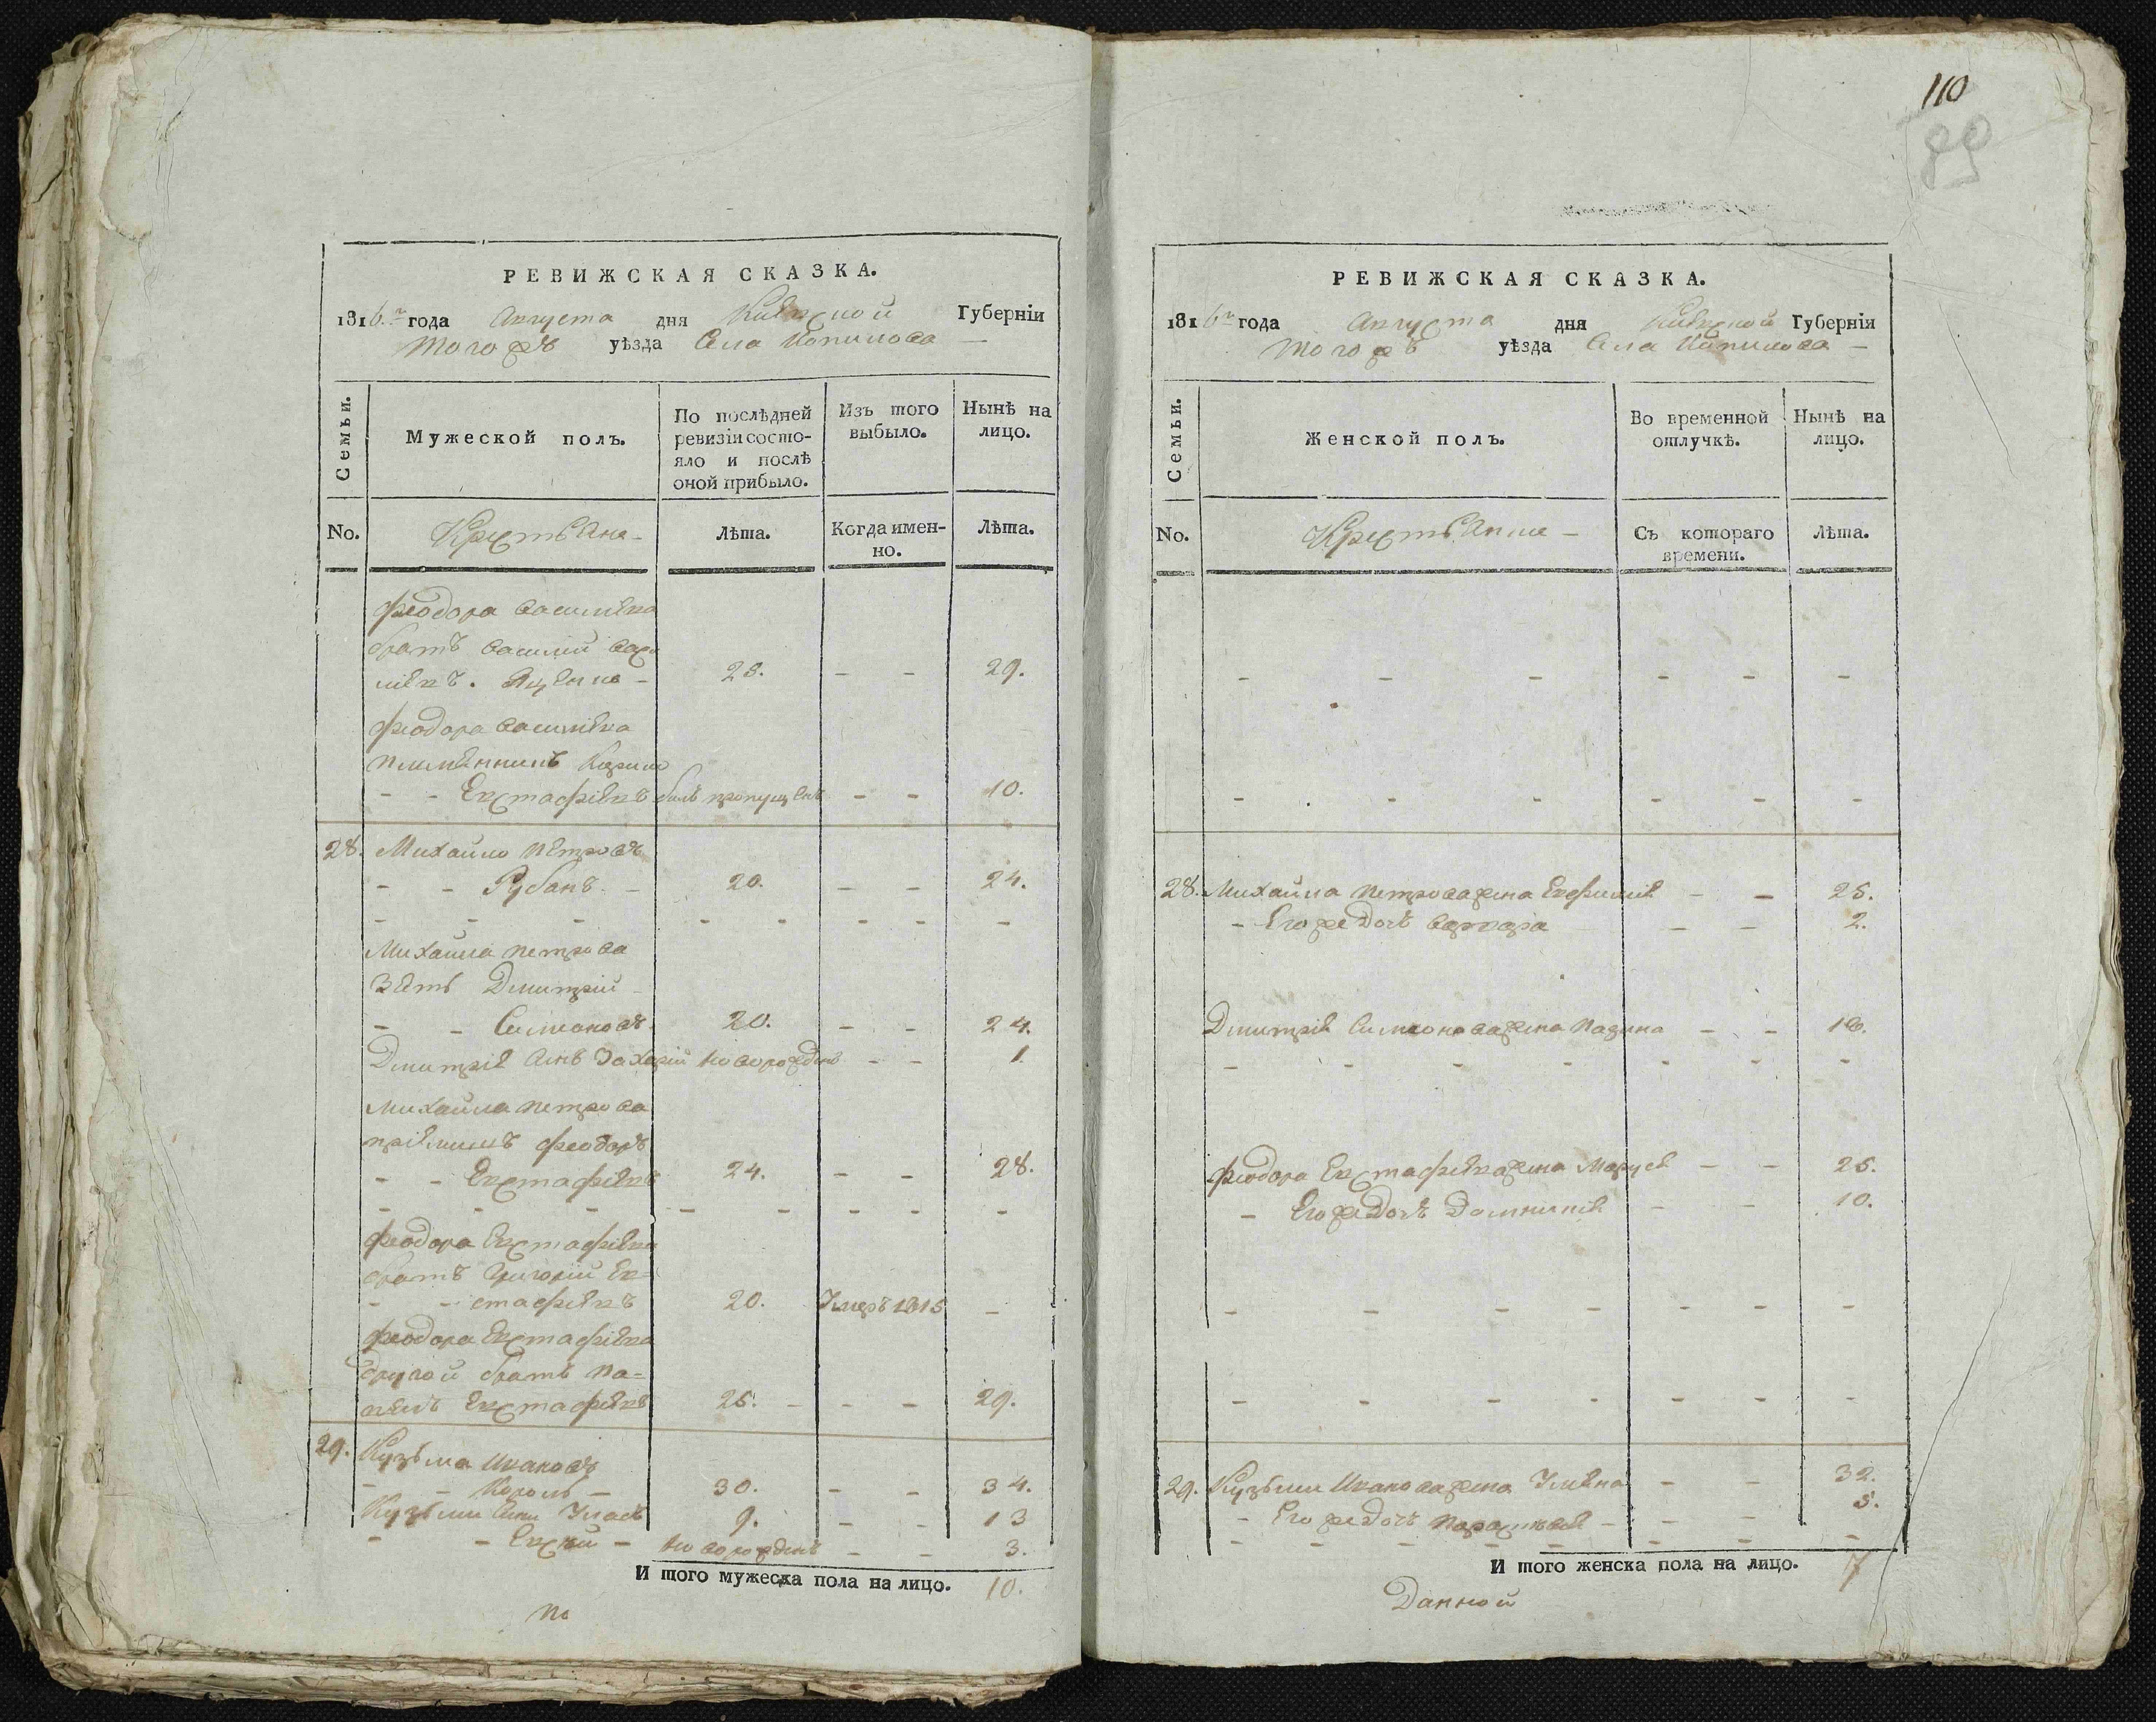 110
89
РЕВИЖСКАЯ СКАЗКА.
1816.го года Августа дня Киевской Губерніи
Тогожъ уѣзда Села Копилова
Семьи.
Мужеской полъ.
По послѣдней ревизіи состояло и послѣ оной прибыло.
Изъ того выбыло.
Нынѣ на лицо.
No.
Крестьяне
Лѣта.
Когда именно.
Лѣта.
Феодора Василѣва
братъ Василий Васи
лiевъ. 25. - - 29.
Феодора Василiева
племѣнникъ
- - Евстафiевъ былъ пропущенъ - - 10.
28. Михайло Петровъ
- - Рубанъ - 20. - - 24.
Михайла Петрова
Зять Дмитрій
- - Симоновъ 20. - - 24.
Дмитрiя Сынъ Захарiй новорожденъ - - 1.
Михайла Петрова
прiемишъ Феодоръ
- - Евстафiевъ 24. - - 28.
Феодора Евстафiева
братъ Григорій Ев=
- - стафiевъ 20. Умеръ 1815 -
Феодора Евстафiева
другой братъ Па=
велъ Евстафiевъ 25. - - - 29.
29. Кузьма Ивановъ
- - Король - 30. - - 34.
Кузьми Сыни Уласъ 9. - - 13
- - Евсѣй - новорожденъ - - 3.
И того мужеска пола на лицо. 10.
По
РЕВИЖСКАЯ СКАЗКА.
1816го года Августа дня Киевской Губернія
Тогожъ уѣзда Села Копилова -
Семьи.
Женской полъ.
Во временной отлучкѣ.
Нынѣ на лицо.
No.
Крестьянше -
Съ котораго времени.
Лѣта.
28. Михайла Петрова жена Евфимiя - - 25.
- Его же Дочь Варвара - - 2.
Дмитрiя Симонова жена - - 18.
Феодора Евстафiева жена Маруся - - 25.
- Его же Дочь Домникiя - - 10.
29. Кузьми Иванова жена Улiяна - - 32.
- Его же Дочь Параскѣвiя - - - 5.
И того женска пола на лицо. 7
Данной